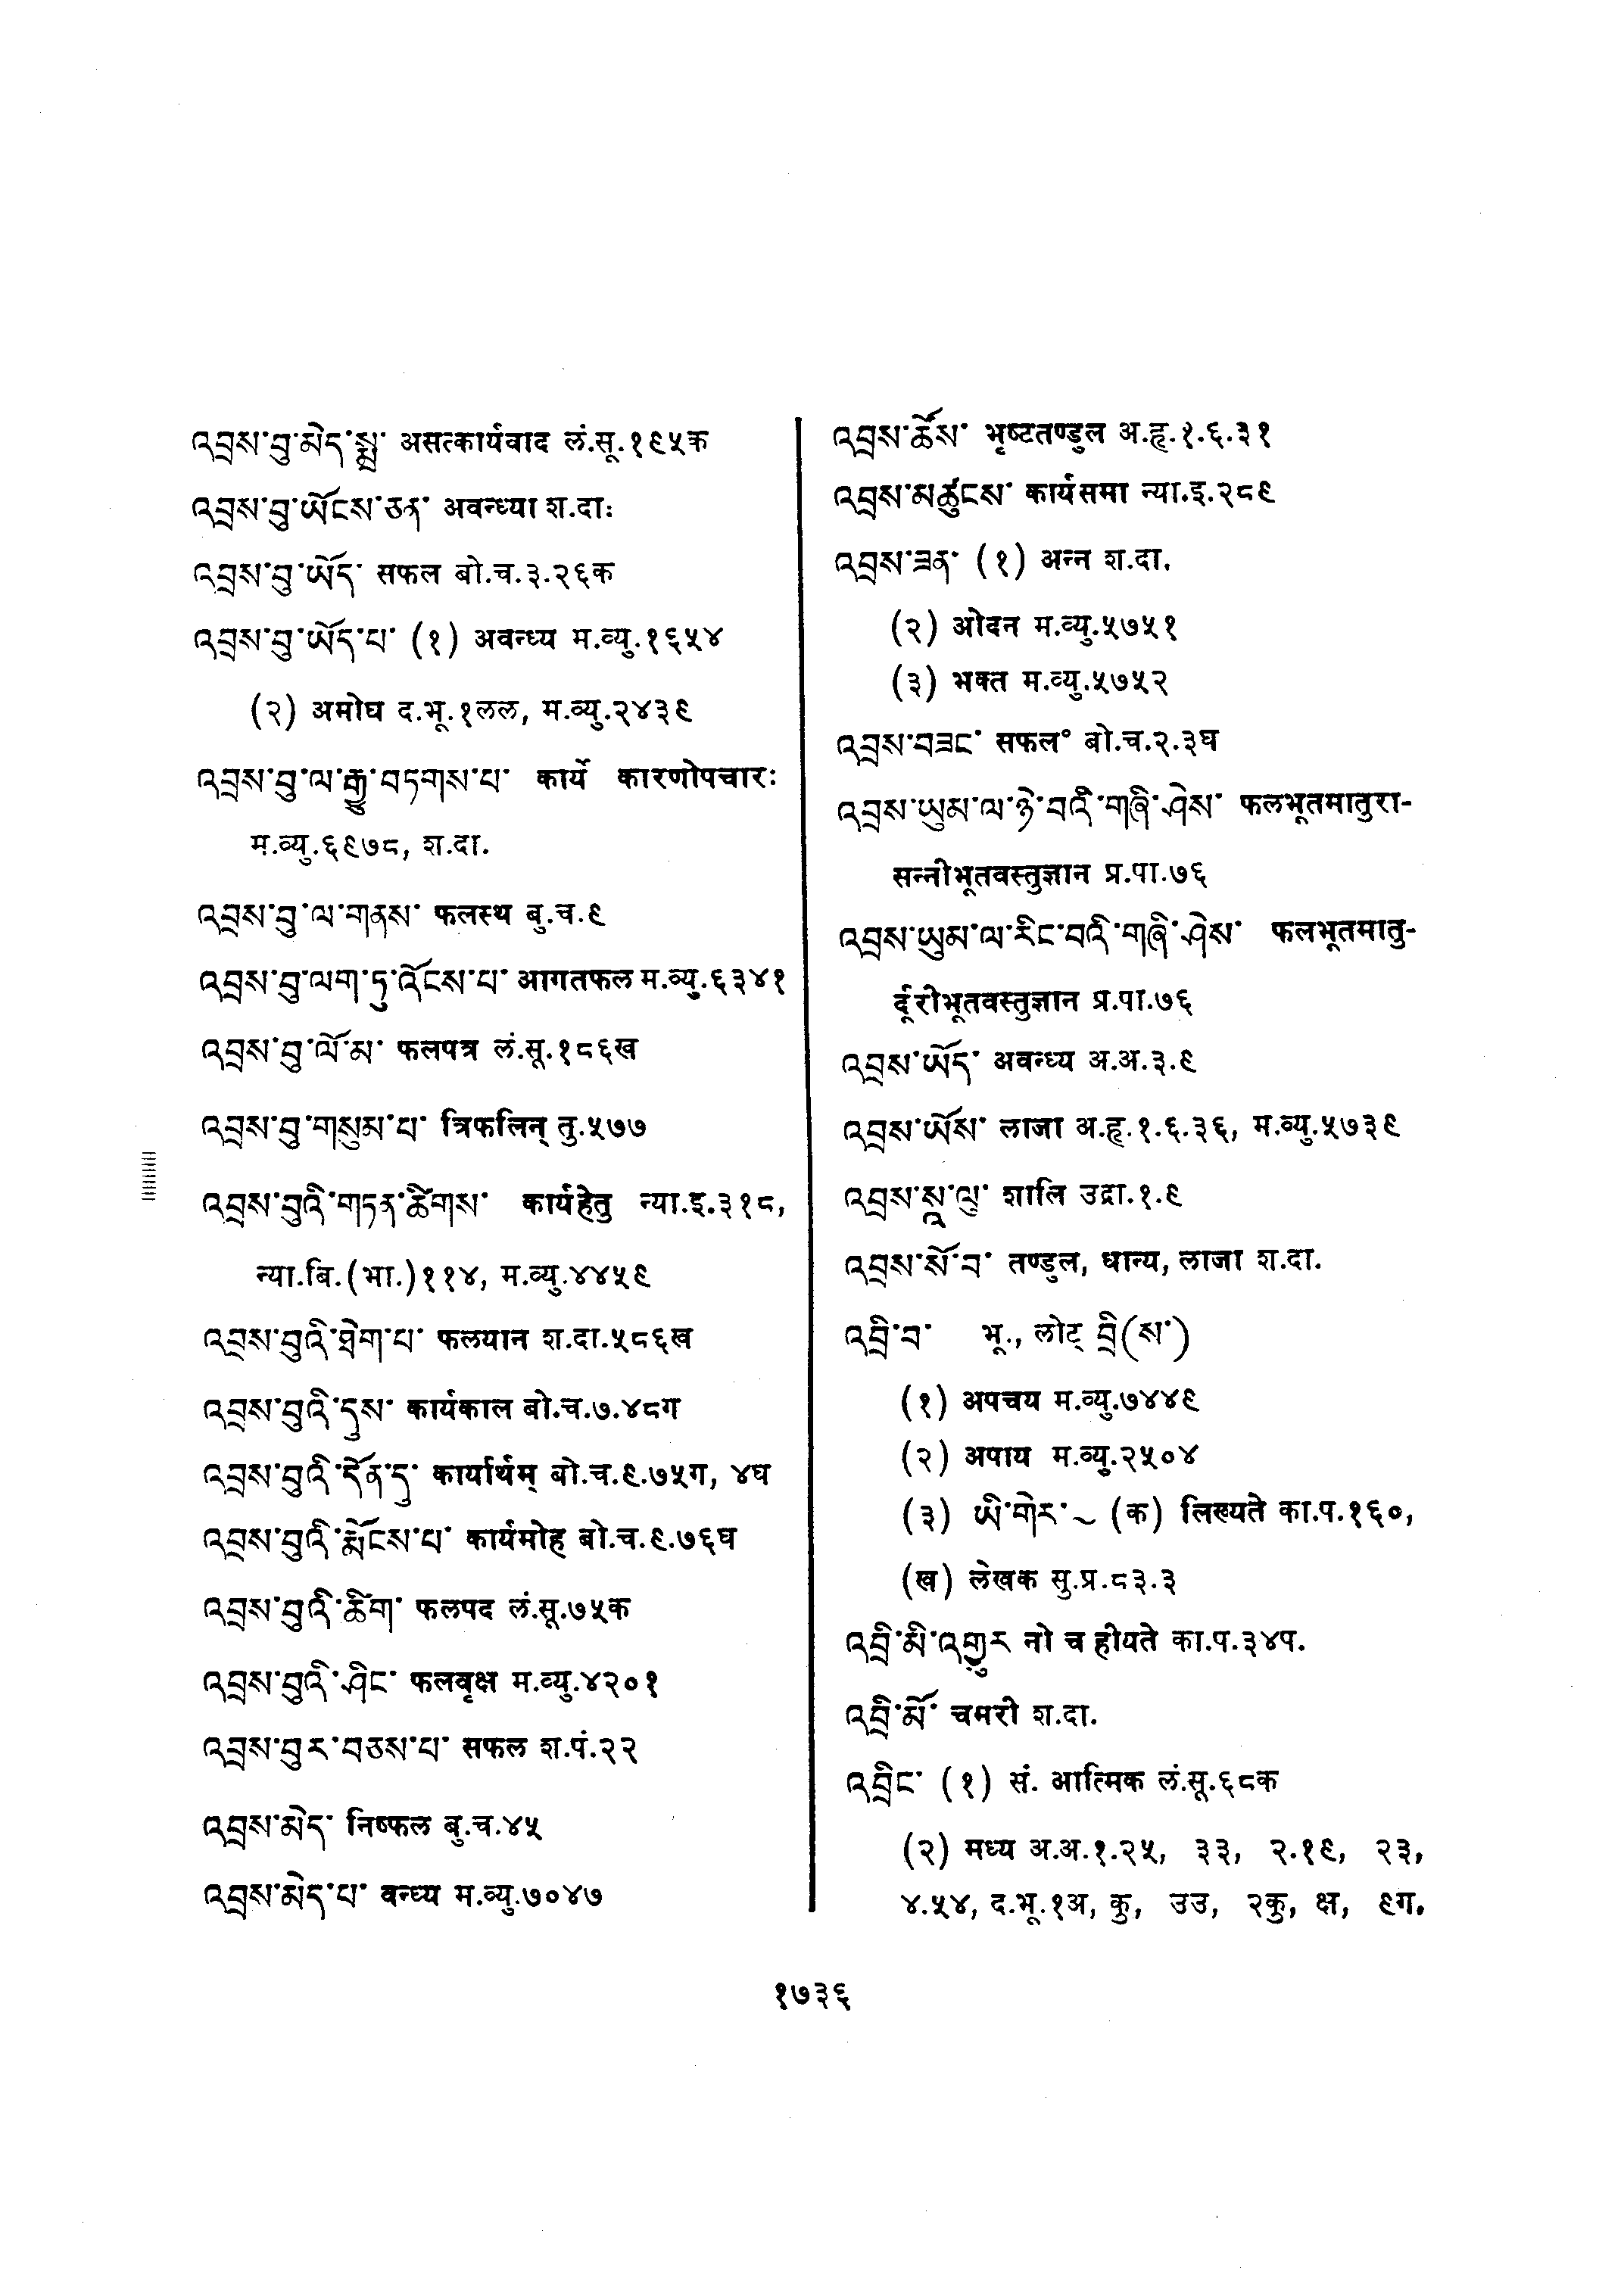 འབྲས་བུ་མེད་སྨྲ་ असत्कार्यवाद लं.सू.१९५क
འབྲས་བུ་ཡོངས་ཅན་ अवन्ध्या श.दाः
འབྲས་བུ་ཡོད་ सफल बो.च.३.२६क
འབྲས་བུ་ཡོད་པ་ (१) अवन्ध्य म.व्यु.१६५४
(२) अमोघ द.भू.१लल, म.व्यु.२४३९
འབྲས་བུ་ལ་རྒྱུ་བཏགས་པ་ कार्ये कारणोपचारः
म.व्यु.६९७८, श.दा.
འབྲས་བུ་ལ་གནས་ फलस्थ बु.च.९
འབྲས་བུ་ལག་ཏུ་འོངས་པ་ आगतफल म.व्यु.६३४१
འབྲས་བུ་ལོ་མ་ फलपत्र लं.सू.१८६ख
འབྲས་བུ་གསུམ་པ་ त्रिफलिन् तु.५७७
འབྲས་བུའི་གཏན་ཚིགས་ कार्यहेतु न्या.इ.३१८,
न्या.बि.(भा.)११४, म.व्यु.४४५९
འབྲས་བུའི་ཐེག་པ་ फलयान श.दा.५८६ख
འབྲས་བུའི་དུས་ कार्यकाल बो.च.७.४८ग
འབྲས་བུའི་དོན་དུ་ कार्यार्थम् बो.च.९.७५ग, ४घ
འབྲས་བུའི་རྨོངས་པ་ कार्यमोह बो.च.९.७६घ
འབྲས་བུའི་ཚིག་ फलपद लं.सू.७५क
འབྲས་བུའི་ཤིང་ फलवृक्ष म.व्यु.४२०१
འབྲས་བུར་བཅས་པ་ सफल श.पं.२२
འབྲས་མེད་ निष्फल बु.च.४५
འབྲས་མེད་པ་ वन्ध्य म.व्यु.७०४७
འབྲས་ཚོས་ भृष्टतण्डुल अ.हृ.१.६.३१
འབྲས་མཚུངས་ कार्यसमा न्या.इ.२८९
འབྲས་ཟན་ (१) अन्न श.दा.
(२) ओदन म.व्यु.५७५१
(३) भक्त म.व्यु.५७५२
འབྲས་བཟང་ सफल° बो.च.२.३घ
འབྲས་ཡུམ་ལ་ཉེ་བའི་གཞི་ཤེས་ फलभूतमातुरा-
सन्नीभूतवस्तुज्ञान प्र.पा.७६
འབྲས་ཡུམ་ལ་རིང་བའི་གཞི་ཤེས་ फलभूतमातु-
र्दूरीभूतवस्तुज्ञान प्र.पा.७६
འབྲས་ཡོད་ अवन्ध्य अ.अ.३.९
འབྲས་ཡོས་ लाजा अ.हृ.१.६.३६, म.व्यु.५७३९
འབྲས་སཱ་ལུ་ शालि उद्रा.१.९
འབྲས་སོ་བ་ तण्डुल, धान्य, लाजा श.दा.
འབྲི་བ་ भू., लोट् བྲི(ས་)
(१) अपचय म.व्यु.७४४९
(२) अपाय म.व्यु.२५०४
(३) ཡི་གེར་~ (क) लिख्यते का.प.१६०,
(ख) लेखक सु.प्र.८३.३
འབྲི་མི་འགྱུར नो च हीयते का.प.३४प.
འབྲི་མོ་ चमरी श.दा.
འབྲིང་ (१) सं. आत्मिक लं.सू.६८क
(२) मध्य अ.अ.१.२५, ३३, २.१९, २३,
४.५४, द.भू.१अ, कु, उउ, २कु, क्ष, ९ग.
१७३६